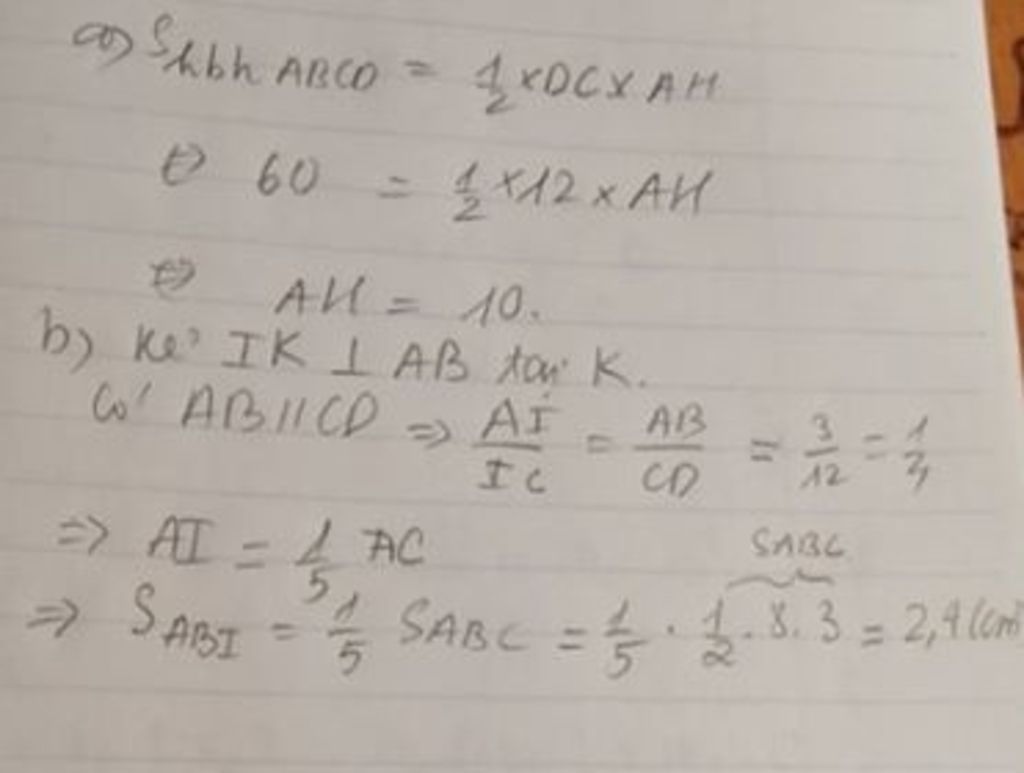 a) Shbh ABCD = 1/2 x DC x AH
⇔ 60 = 1/2 x 12 x AH
⇔ AH = 10.
b) Kẻ IK ⊥ AB tại K.
Có AB // CD ⇒ AI/IC = AB/CD = 3/12 = 1/4
⇒ AI = 1/5 AC
SABC
⇒ SABI = 1/5 SABC = 1/5 . 1/2 . 8 . 3 = 2,4 (cm